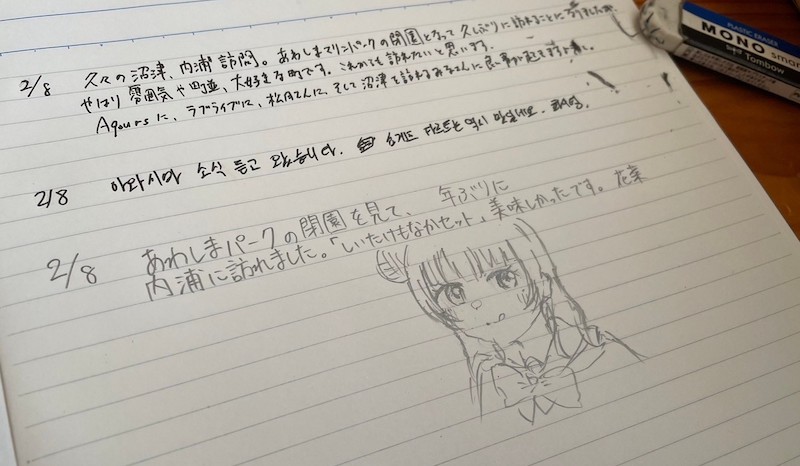 2/8 久々の沼津、内浦訪問。あわしまマリンパークの閉園となって久しぶりに訪れることに
やはり雰囲気や町並、大好きな町です。これからも訪れたいと思います。
Aqoursに、ラブライブに、松月さんに、そして沼津を訪れるみなさんに良い事が起きますように。
2/8 아와시마 소식 듣고 왔습니다. 역시 맛있네요.
2/8 あわしまパークの閉園を見て、 年ぶりに
内浦に訪れました。「しいたけもなかセット」美味しかったです。花菜
PLASTIC ERASER
MONO smart
Tombow